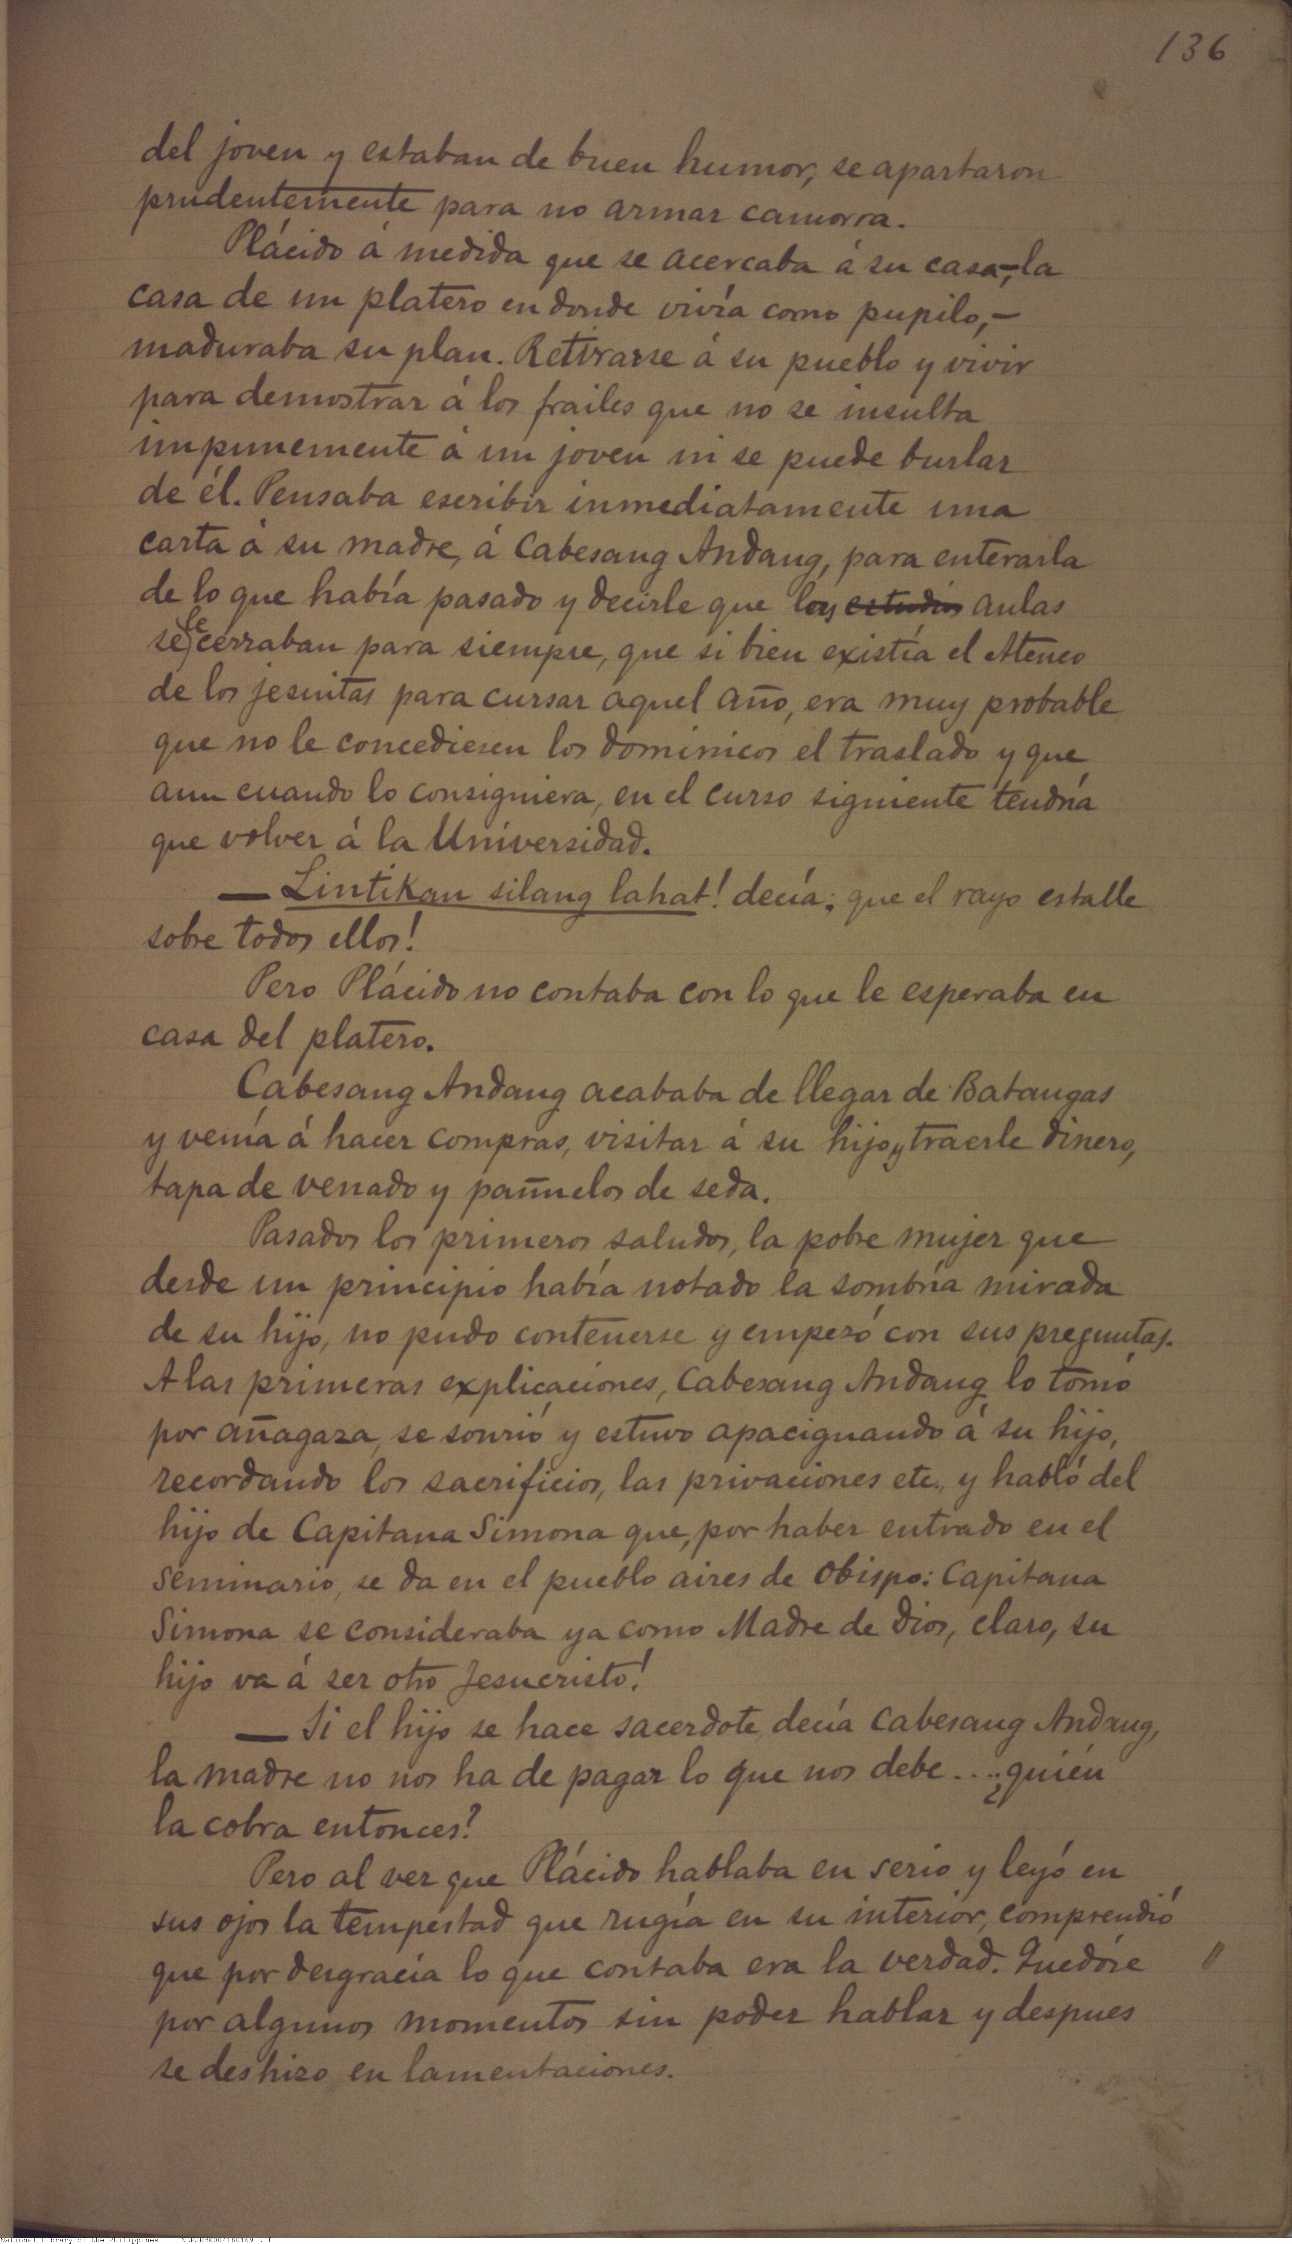 136
del joven y estaban de buen humor, se apartaron
prudentemente para no armar camorra.
Plácido á medida que se acercaba á su casa,-la
casa de un platero en donde vivía como pupilo,-
maduraba su plan. Retirarse á su pueblo y vivir
para demostrar á los frailes que no se insulta
impunemente á un joven ni se puede burlar
de él. Pensaba escribir inmediatamente una
carta á su madre, á Cabesang Andang, para enterarla
de lo que había pasado y decirle que las estudios aulas
se le cerraban para siempre, que si bien existía el Ateneo
de los jesuitas para cursar aquel año, era muy probable
que no le concediesen los dominicos el traslado y que
aun cuando lo consiguiera, en el curso siguiente tendría
que volver á la Universidad.
— Lintikan silang lahat! decía; que el rayo estalle
sobre todos ellos!
Pero Plácido no contaba con lo que le esperaba en
casa del platero.
Cabesang Andang acababa de llegar de Batangas
y venía á hacer compras, visitar á su hijo y traerle dinero,
tapa de venado y pañuelos de seda.
Pasados los primeros saludos, la pobre mujer que
desde un principio había notado la sombría mirada
de su hijo, no pudo contenerse y empezó con sus preguntas.
A las primeras explicaciones, Cabesang Andang lo tomó
por añagaza, se sonrió y estuvo apaciguando á su hijo,
recordando los sacrificios, las privaciones etc., y habló del
hijo de Capitana Simona que, por haber entrado en el
Seminario, se da en el pueblo aires de Obispo: Capitana
Simona se consideraba ya como Madre de Dios, claro, su
hijo va á ser otro Jesucristo!
— Si el hijo se hace sacerdote, decía Cabesang Andang,
la madre no nos ha de pagar lo que nos debe.... ¿quién
la cobra entonces?
Pero al ver que Plácido hablaba en serio y leyó en
sus ojos la tempestad que rugía en su interior, comprendió
que por desgracia lo que contaba era la verdad. Quedóse //
por algunos momentos sin poder hablar y despues
se deshizo en lamentaciones.